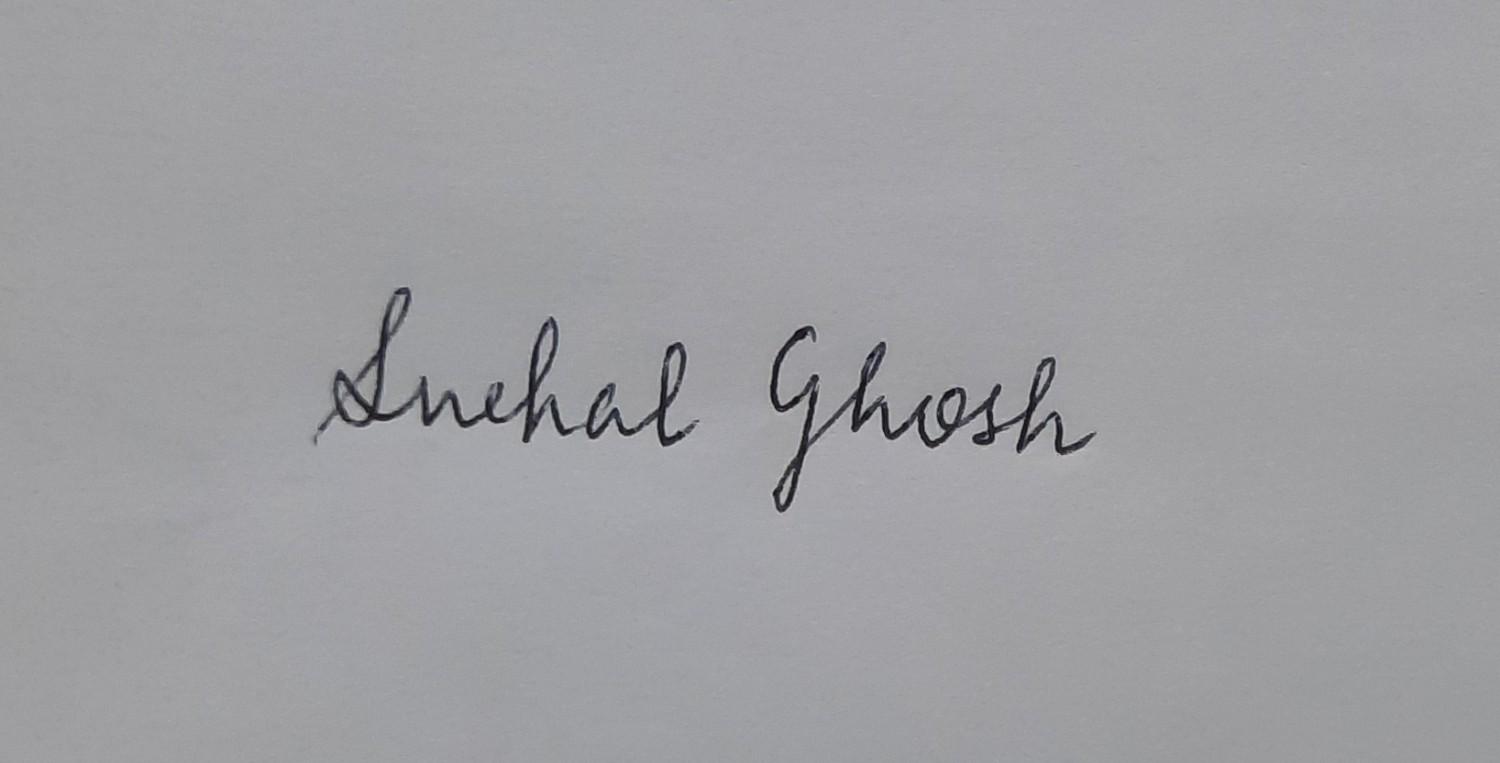 Snehal Ghosh